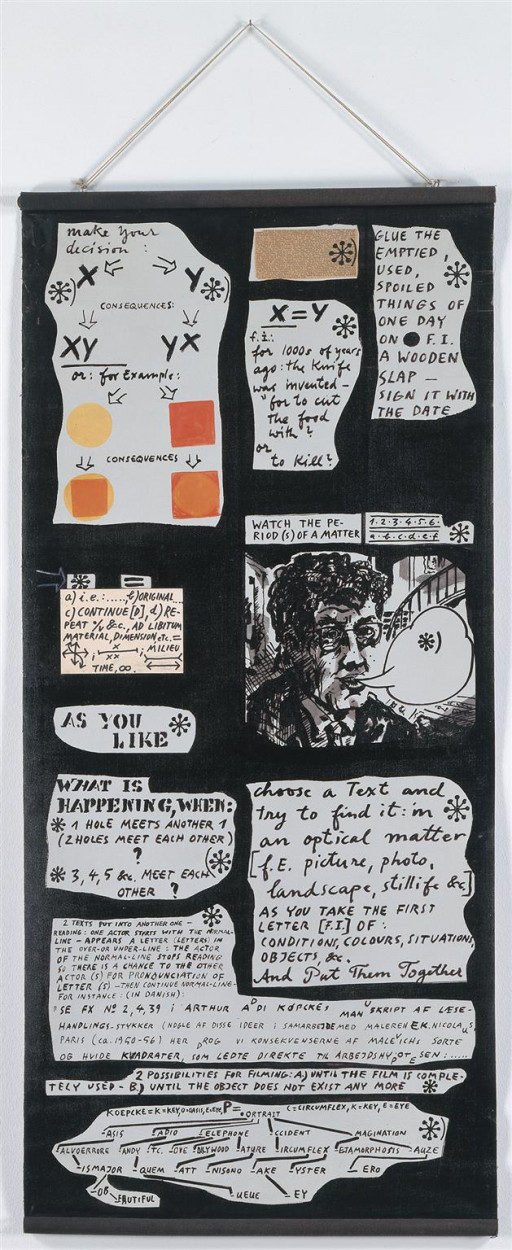 make Your
decision :
X Y
CONSEQUENCES:
XY YX
or: for Example:
CONSEQUENCES
GLUE THE
EMPTIED,
USED,
SPOILED
THINGS OF
ONE DAY
ON F.I.
A WOODEN
SLAP —
SIGN IT WITH
THE DATE
X=Y
f.i:
for 1000s of years
ago: the Knife
was invented –
"for to cut
the food
with?
or
to Kill?
WATCH THE PE-
RIOD(S) OF A MATTER
1·2·3·4·5·6·
a·b·c·d·e·f
a) i.e:.....,b)ORIGINAL...
c) CONTINUE [D], d) RE-
PEAT &c., AD LIBITUM
MATERIAL, DIMENSION etc. =
MILIEU
TIME, ∞.
*)
AS YOU
LIKE *
WHAT IS
HAPPENING, WHEN:
* 1 HOLE MEETS ANOTHER 1
(2 HOLES MEET EACH OTHER)
?
* 3, 4, 5 &c. MEET EACH
OTHER ?
choose a Text and
try to find it: in
an optical matter
[f.E. picture, photo,
landscape, stillife &c]
AS YOU TAKE THE FIRST
LETTER [F.I] OF :
CONDITIONS, COLOURS, SITUATIONS,
OBJECTS, &c.
And Put Them Together
2 TEXTS PUT INTO ANOTHER ONE –
READING: ONE ACTOR STARTS WITH THE NORMAL-
LINE – APPEARS A LETTER (LETTERS) IN
THE OVER OR UNDER-LINE : THE ACTOR
OF THE NORMAL-LINE STOPS READING
SO THERE IS A CHANCE TO THE OTHER
ACTOR (S) FOR PRONOUNCIATION OF
LETTER (S) – THEN CONTINUE NORMAL-LINE-
FOR INSTANCE: (IN DANISH):
SE FX Nº 2,4,39 I ARTHUR APDI KØPCKES MANUSKRIPT AF LÆSE-
HANDLINGS-STYKKER (NOGLE AF DISSE IDEER I SAMARBEJDE MED MALEREN E.K. NICOLAUS,
PARIS (ca. 1960-56) HER DROG VI KONSEKVENSERNE AF MALEVICHS SORTE
OG HVIDE KVADRATER, SOM LEDTE DIREKTE TIL ARBEJDSHYPOTESEN:.....
2 POSSIBILITIES FOR FILMING: A.) UNTIL THE FILM IS COMPLE-
TELY USED – B.) UNTIL THE OBJECT DOES NOT EXIST ANY MORE *
KOEPCKE = K=KEY, O=OASIS, E=EYE, P= ORTRAIT C=CIRCUMFLEX, K=KEY, E=EYE
ASIS ADIO ELEPHONE CCIDENT MAGINATION
ANDY TC. OVE OLLYWOOD ATURE IRCUMFLEX ETAMORPHOSIS AUZE
ISMAJOR QUEM ATT NISONO AKE YSTER ERO
OB EAUTIFUL UEUE EY